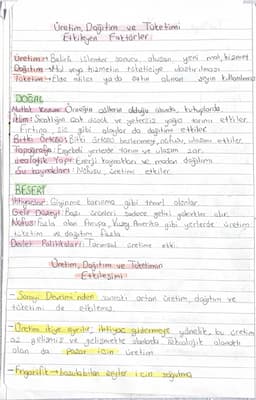 Üretim, Dağıtım ve Tüketimi
Etkileyen Faktörler:
Üretim→ Belirli işlemler sonucu oluşan yeni mal, hizmet
Dağıtım→ Mal veya hizmetin tüketiciye ulaştırılması
Tüketim→ Elde edilen ya da satın alınan şeyin kullanılması
DOĞAL
Mutlak Konum: Örneğin çöllerde olduğu alanda, kutuplarda
İklim: Sıcaklığın çok düşük ve yetersiz yağış tarımı etkiler.
Fırtına, sis gibi olaylar da dağıtımı etkiler
Bitki Örtüsü: Bitki örtüsü beslenmeyi, nüfusu, ulaşımı etkiler.
Topoğrafya: Engebeli yerlerde tarım ve ulaşım zor.
Jeolojik Yapı: Enerji kaynakları ve maden dağılımı
Su kaynakları: Nüfusu, üretimi etkiler.
BEŞERİ
İhtiyaçlar: Giyinme barınma gibi temel olanlar.
Gelir Düzeyi: Bazı ürünleri sadece geliri yüksekler alır.
Nüfus: Fazla olan Avrupa, Kuzey Amerika gibi yerlerde üretim
tüketim ve dağıtım fazla.
Devlet Politikaları: Tarımsal üretime etki.
Üretim, Dağıtım ve Tüketimin
Etkileşimi
- Sanayi Devrimi'nden sonraki artan üretim, dağıtım ve
tüketimi de etkilemiş.
- Üretim ikiye ayrılır, ihtiyaç gidermeye yönelik, bu üretim
az gelişmiş ve gelişmekte olanlarda teknolojik olanaklı
olan da pazar için üretim